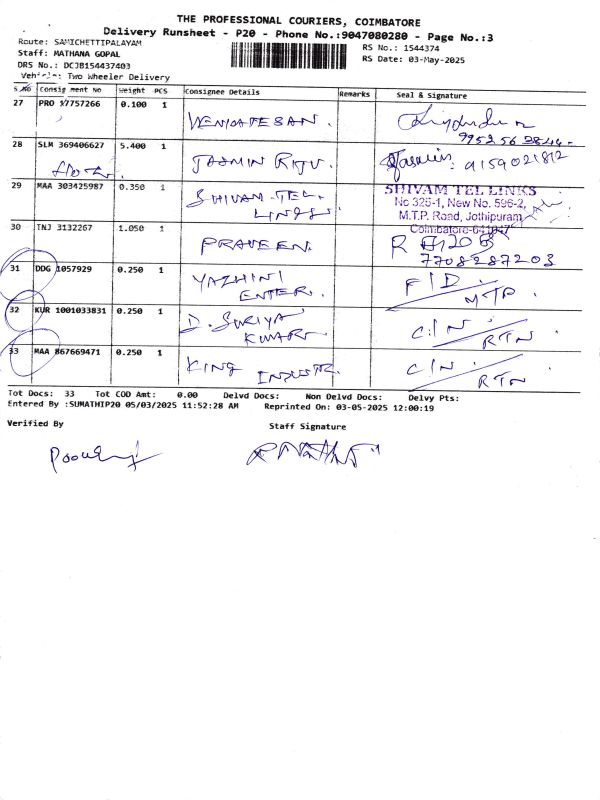 THE PROFESSIONAL COURIERS, COIMBATORE
Delivery Runsheet - P20 - Phone No.:9047080280 - Page No.:3
Route: SAMICHETTIPALAYAM
RS No.: 1544374
Staff: MATHANA GOPAL
RS Date: 03-May-2025
DRS No.: DCJB154437403
Vehicle: Two Wheeler Delivery
S.No Consignment No Weight PCS Consignee Details Remarks Seal & Signature
27 PRO 37757266 0.100 1 VENKATESAN.
28 SLM 369406627 5.400 1 JASMIN RIJU. 9159021812
29 MAA 303425987 0.350 1 SHIVAM-TEL. LINGS.
SHIVAM TEL LINKS
No 326-1, New No. 596-2,
M.T.P. Road, Jothipuram
Coimbatore-641047
30 TNJ 3132267 1.050 1 PRAVEEN.
7708287203
31 DDG 1057929 0.250 1 YAZHINI ENTER. F/D. MTP
32 KUR 1001033831 0.250 1 D. SURIYA KUMAR C/N. RTN
33 MAA 867669471 0.250 1 KING INDUSTR. C/N. RTN
Tot Docs: 33 Tot COD Amt: 0.00 Delvd Docs: Non Delvd Docs: Delvy Pts:
Entered By :SUMATHIP20 05/03/2025 11:52:28 AM Reprinted On: 03-05-2025 12:00:19
Verified By
Staff Signature